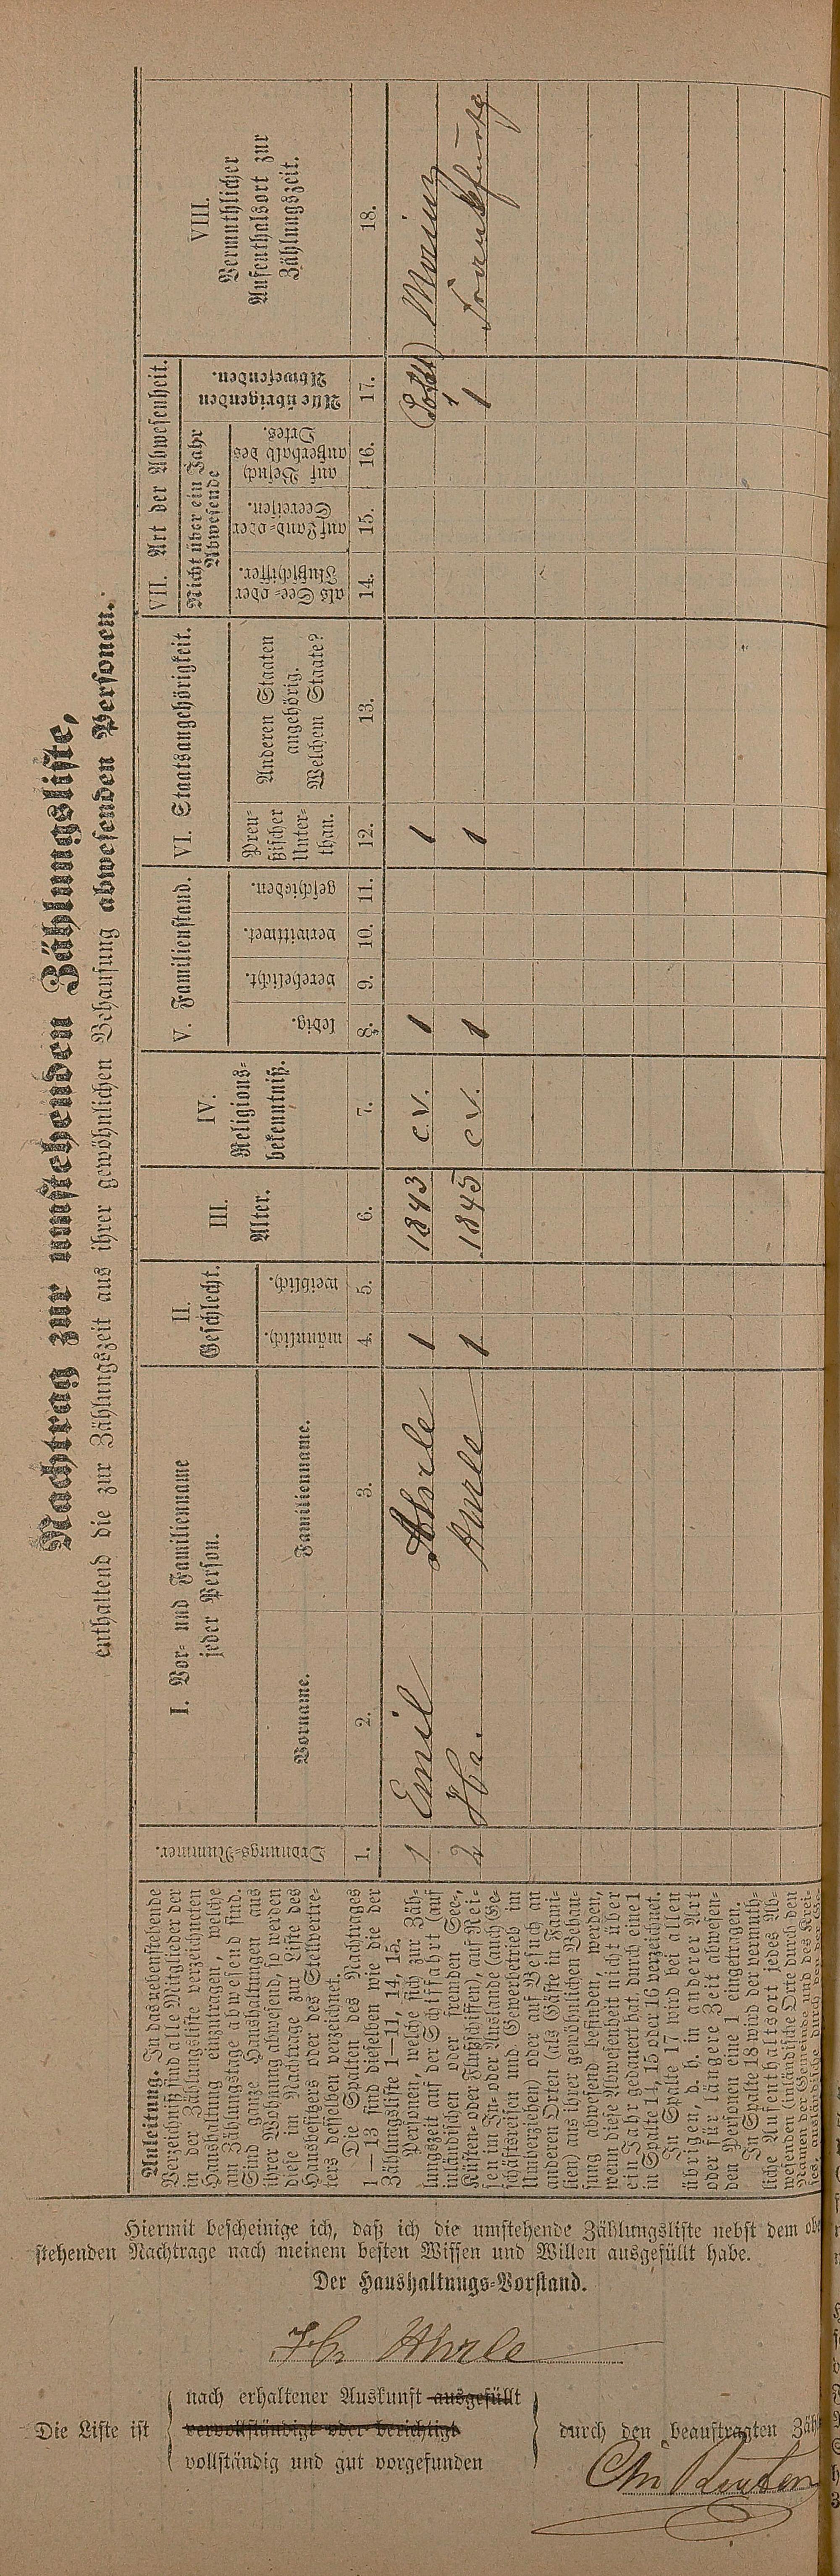 Nachtrag zur umstehenden Zählungsliste,
enthaltend die zur Zählungszeit aus ihrer gewöhnlichen Behausung abwesenden Personen.
Anleitung. In das nebenstehende
Verzeichniß sind alle Mitglieder der
in der Zählungsliste verzeichneten
Haushaltung einzutragen, welche
am Zählungstage abwesend sind.
Sind ganze Haushaltungen aus
ihrer Wohnung abwesend, so werden
diese im Nachtrage zur Liste des
Hausbesitzers oder des Stellvertre-
ters desselben verzeichnet.
Die Spalten des Nachtrages
1—13 sind dieselben wie die der
Zählungsliste 1—11, 14, 15.
Personen, welche sich zur Zäh-
lungszeit auf der Schifffahrt (auf
inländischen oder fremden See-,
Küsten- oder Flußschiffen), auf Rei-
sen im In- oder Auslande (auch Ge-
schäftsreisen und Gewerbebetrieb im
Umherziehen) oder auf Besuch an
anderen Orten (als Gäste in Fami-
lien) aus ihrer gewöhnlichen Behau-
sung abwesend befinden, werden,
wenn diese Abwesenheit nicht über
ein Jahr gedauert hat, durch eine 1
in Spalte 14, 15 oder 16 verzeichnet.
In Spalte 17 wird bei allen
übrigen, d. h. in anderer Art
oder für längere Zeit abwesen-
den Personen eine 1 eingetragen.
In Spalte 18 wird der vermuth-
liche Aufenthaltsort jedes Ab-
wesenden (inländische Orte durch den
Namen der Gemeinde und des Krei-
ses, ausländische durch den der Ge-
Ordnungs-Nummer.
I. Vor- und Familienname
jeder Person.
Vorname.
Familienname.
II.
Geschlecht.
männlich.
weiblich.
III.
Alter.
IV.
Religions-
bekenntniß.
V. Familienstand.
ledig.
verehelicht.
verwittwet.
geschieden.
VI. Staatsangehörigkeit.
Preu-
ßischer
Unter-
than.
Anderen Staaten
angehörig.
Welchem Staate?
VII. Art der Abwesenheit.
Nicht über ein Jahr
Abwesende
als See- oder
Flußschiffer.
auf Land- oder
Seereisen.
auf Besuch
außerhalb des
Ortes.
Alle übrigen
Abwesenden.
VIII.
Vermuthlicher
Aufenthaltsort zur
Zählungszeit.
1. 2. 3. 4. 5. 6. 7. 8. 9. 10. 11. 12. 13. 14. 15. 16. 17. 18.
1 Emil Ahrle 1 1843 ev. 1 1 1 Mainz
2 Hch. Ahrle 1 1845 ev. 1 1 1 Frankfurt
Hiermit bescheinige ich, daß ich die umstehende Zählungsliste nebst dem obe
stehenden Nachtrage nach meinem besten Wissen und Willen ausgefüllt habe.
Der Haushaltungs-Vorstand.
Ahrle
Die Liste ist
nach erhaltener Auskunft ausgefüllt
vervollständigt oder berichtigt
vollständig und gut vorgefunden
durch den beauftragten Zäh